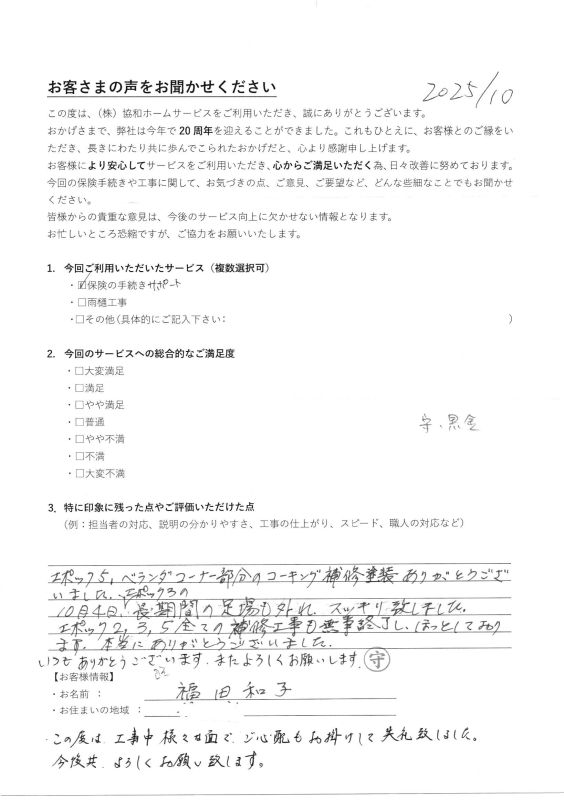 お客さまの声をお聞かせください
2025/10
この度は、（株）協和ホームサービスをご利用いただき、誠にありがとうございます。
おかげさまで、弊社は今年で20周年を迎えることができました。これもひとえに、お客様とのご縁をい
ただき、長きにわたり共に歩んでこられたおかげだと、心より感謝申し上げます。
お客様により安心してサービスをご利用いただき、心からご満足いただく為、日々改善に努めております。
今回の保険手続きや工事に関して、お気づきの点、ご意見、ご要望など、どんな些細なことでもお聞かせ
ください。
皆様からの貴重な意見は、今後のサービス向上に欠かせない情報となります。
お忙しいところ恐縮ですが、ご協力をお願いいたします。
1. 今回ご利用いただいたサービス（複数選択可）
・☑保険の手続きサポート
・□雨樋工事
・□その他(具体的にご記入下さい： )
2. 今回のサービスへの総合的なご満足度
・□大変満足
・□満足
・□やや満足
・□普通
・□やや不満
・□不満
・□大変不満
守、黒金
3. 特に印象に残った点やご評価いただけた点
（例：担当者の対応、説明の分かりやすさ、工事の仕上がり、スピード、職人の対応など）
エポック5、ベランダコーナー部分のコーキング補修塗装ありがとうござい
いました。エポック3の
10月4日、長期間の足場も外れ、スッキリ致しました。
エポック2,3,5全ての補修工事も無事終了し、ほっとしており
ます。本当にありがとうございました。
いつもありがとうございます。またよろしくお願いします。守
【お客様情報】
・お名前 ： 福田和子
・お住まいの地域 ：
・この度は、工事中様々な面で、ご心配もお掛けして失礼致しました。
今後共、よろしくお願い致します。